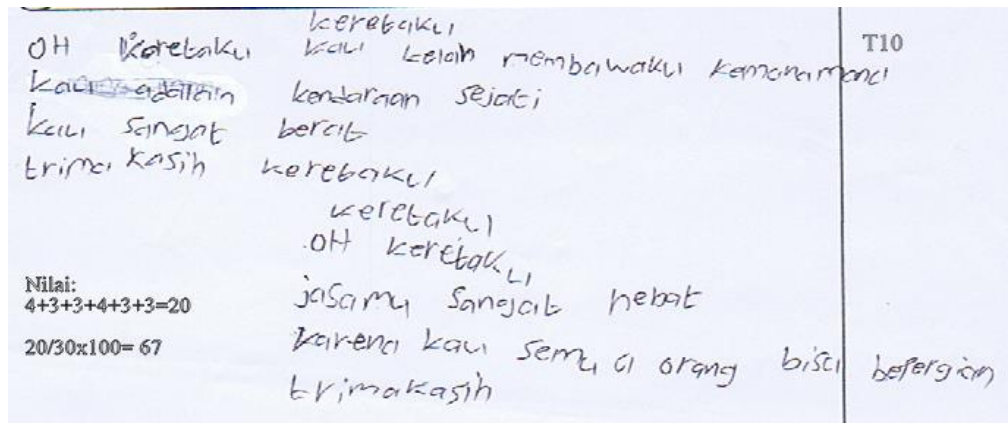 keretaku
OH keretaku kau telah membawaku kemanamana
kau adalah kendaraan sejati
kau sangat berat
trima kasih keretaku
keretaku
OH keretaku
jasamu sangat hebat
karena kau semua orang bisa bepergian
trimakasih
T10
Nilai:
4+3+3+4+3+3=20
20/30x100= 67